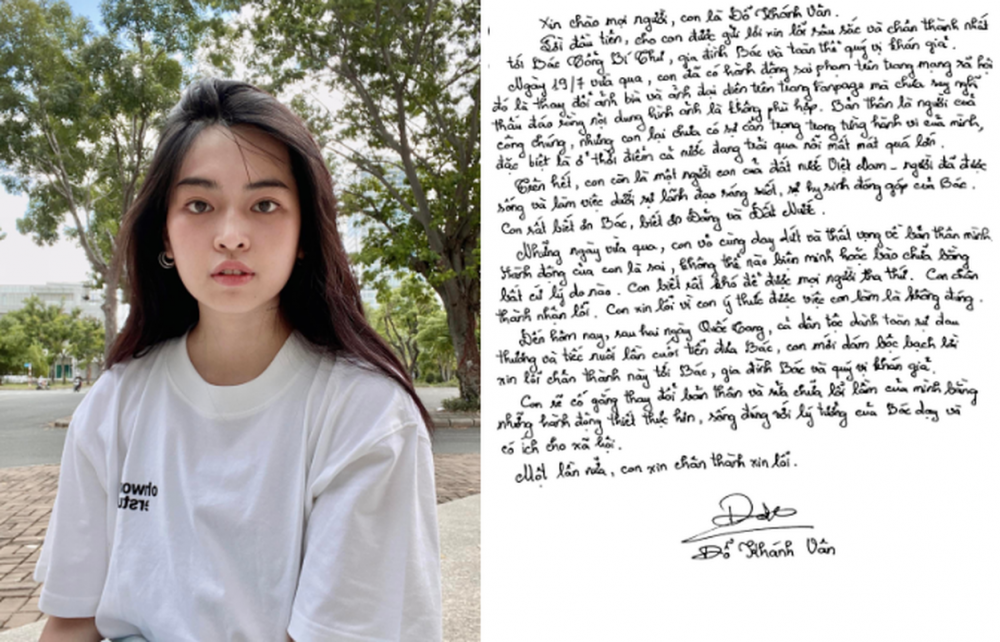 ohwow
erstu
Xin chào mọi người, con là Đỗ Khánh Vân.
Lời đầu tiên, cho con được gửi lời xin lỗi sâu sắc và chân thành nhất
tới Bác Tổng Bí Thư, gia đình Bác và toàn thể quý vị khán giả.
Ngày 19/7 vừa qua, con đã có hành động sai phạm trên trang mạng xã hội
đó là thay đổi ảnh bìa và ảnh đại diện trên trang Fanpage mà chưa suy nghĩ
thấu đáo rằng nội dung hình ảnh là không phù hợp. Bản thân là người của
công chúng, nhưng con lại chưa có sự cẩn trọng trong từng hành vi của mình,
đặc biệt là ở thời điểm cả nước đang trải qua nỗi mất mát quá lớn.
Trên hết, con còn là một người con của đất nước Việt Nam - người đã được
sống và làm việc dưới sự lãnh đạo sáng suốt, sự hy sinh đóng góp của Bác.
Con rất biết ơn Bác, biết ơn Đảng và Đất Nước.
Những ngày vừa qua, con vô cùng day dứt và thất vọng về bản thân mình
Hành động của con là sai, không thể nào biện minh hoặc bào chữa bằng
bất cứ lý do nào. Con biết rất khó để được mọi người tha thứ. Con chân
thành nhận lỗi. Con xin lỗi vì con ý thức được việc con làm là không đúng.
Đến hôm nay, sau hai ngày Quốc tang, cả dân tộc dành toàn sự đau
thương và tiếc nuối lần cuối tiễn đưa Bác, con mới dám bộc bạch lời
xin lỗi chân thành này tới Bác, gia đình Bác và quý vị khán giả.
Con sẽ cố gắng thay đổi bản thân và sửa chữa lỗi lầm của mình bằng
những hành động thiết thực hơn, sống đúng với lý tưởng của Bác dạy và
có ích cho xã hội.
Một lần nữa, con xin chân thành xin lỗi.
Đỗ Khánh Vân